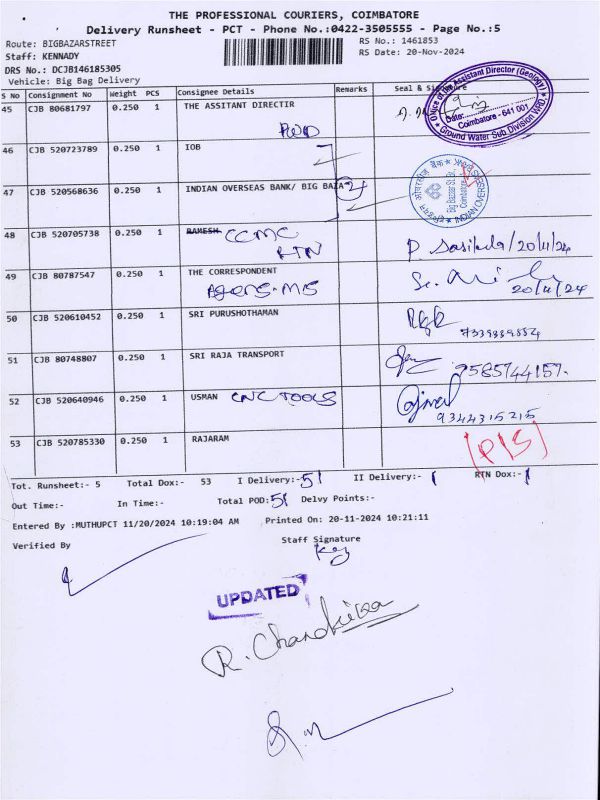 THE PROFESSIONAL COURIERS, COIMBATORE
Delivery Runsheet - PCT - Phone No.:0422-3505555 - Page No.:5
Route: BIGBAZARSTREET
RS No.: 1461853
Staff: KENNADY
RS Date: 20-Nov-2024
DRS No.: DCJB146185305
Vehicle: Big Bag Delivery
S No Consignment No Weight PCS Consignee Details Remarks Seal & Signature
45 CJB 80681797 0.250 1 THE ASSITANT DIRECTIR
PWD
Office of the Assistant Director (Geology)
Date:
Coimbatore - 641 001
Ground Water Sub Division WRD
46 CJB 520723789 0.250 1 IOB
47 CJB 520568636 0.250 1 INDIAN OVERSEAS BANK/ BIG BAZA
2
Big Bazaar St. Br.
Coimbatore
INDIAN OVERSEAS
48 CJB 520705738 0.250 1 RAMESH CCMC
RTN
P /20/11/24
49 CJB 80787547 0.250 1 THE CORRESPONDENT
20/11/24
50 CJB 520610452 0.250 1 SRI PURUSHOTHAMAN
7339839554
51 CJB 80748807 0.250 1 SRI RAJA TRANSPORT
9585744157.
52 CJB 520640946 0.250 1 USMAN CNC TOOLS
9344315215
53 CJB 520785330 0.250 1 RAJARAM
Tot. Runsheet:- 5 Total Dox:- 53 I Delivery:- 51 II Delivery:- 1 RTN Dox:- 1
Out Time:- In Time:- Total POD: 51 Delvy Points:-
Entered By :MUTHUPCT 11/20/2024 10:19:04 AM Printed On: 20-11-2024 10:21:11
Verified By
Staff Signature
UPDATED
R. Chandrika